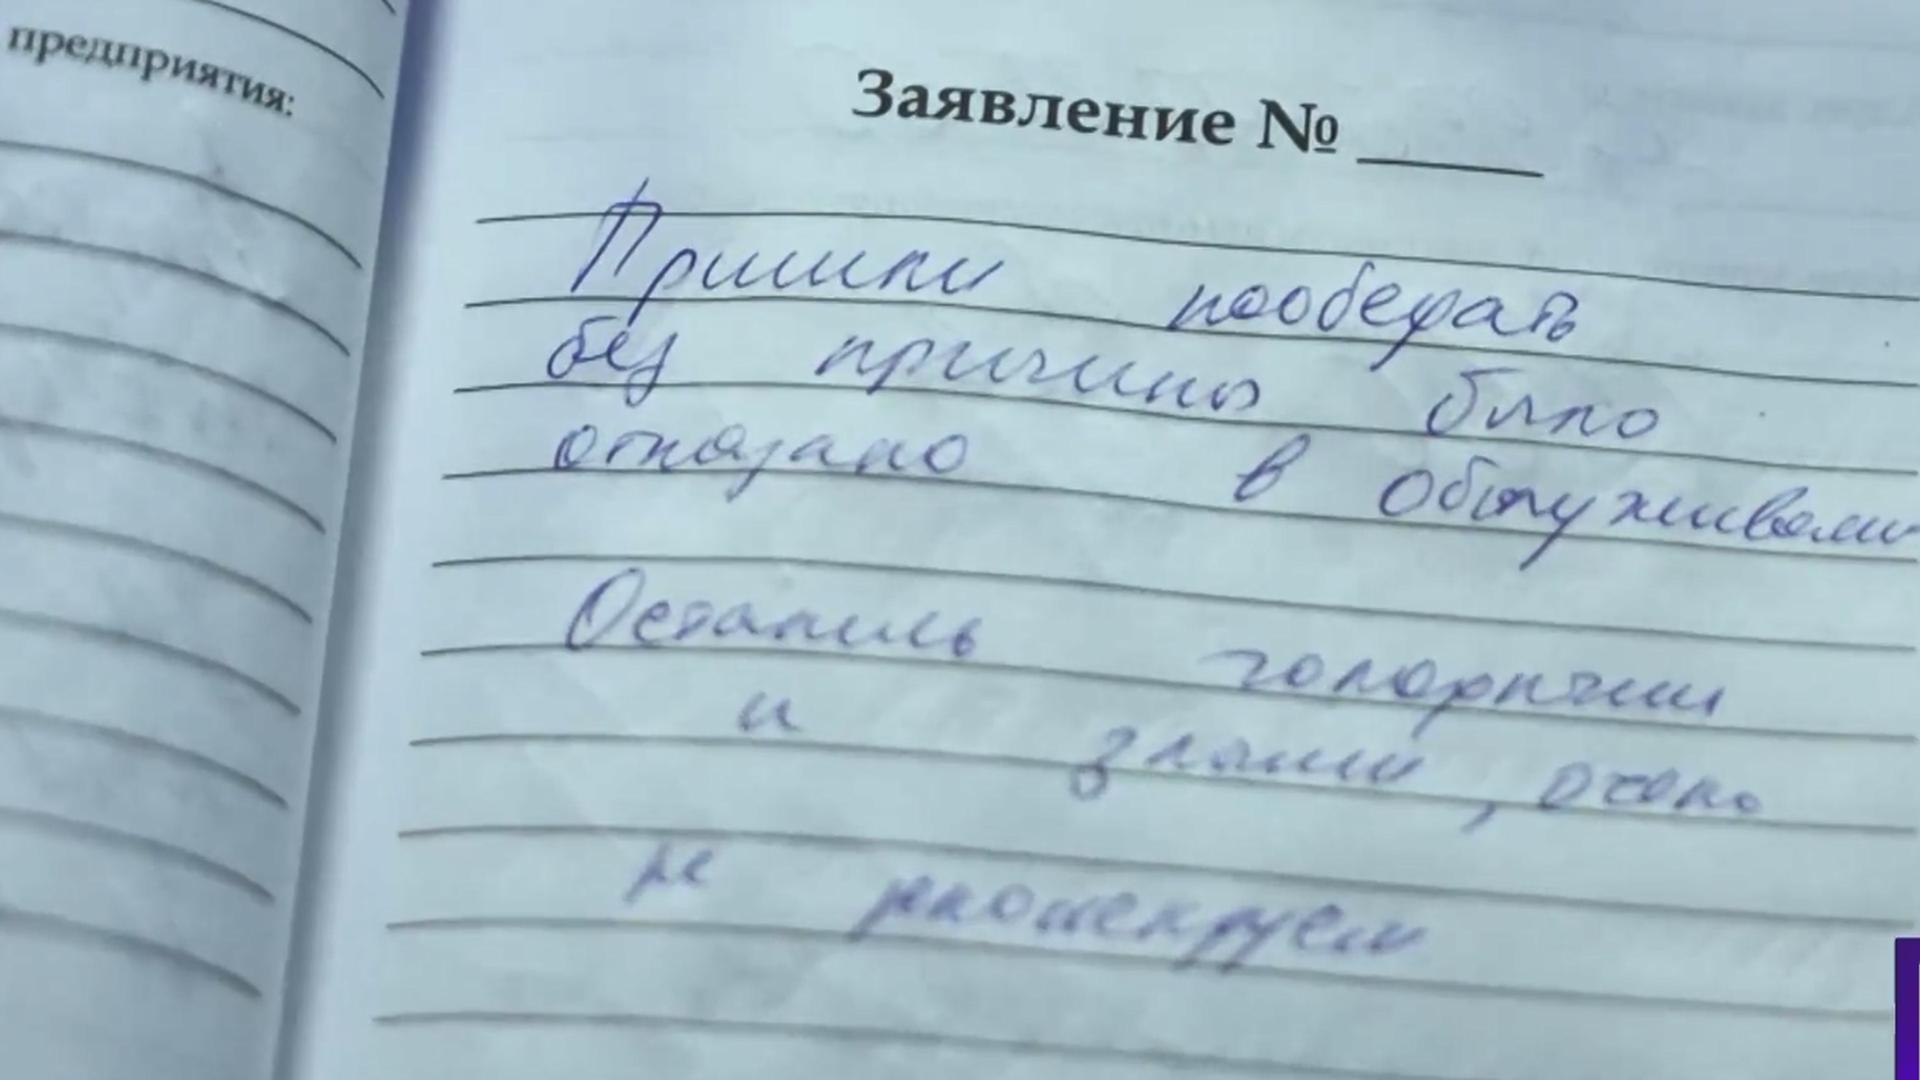 предприятия:
Заявление №
Пришли пообедать
без причины было
отказано в обслуживани
Остались голодными
и злыми, очень
не рекомендуем